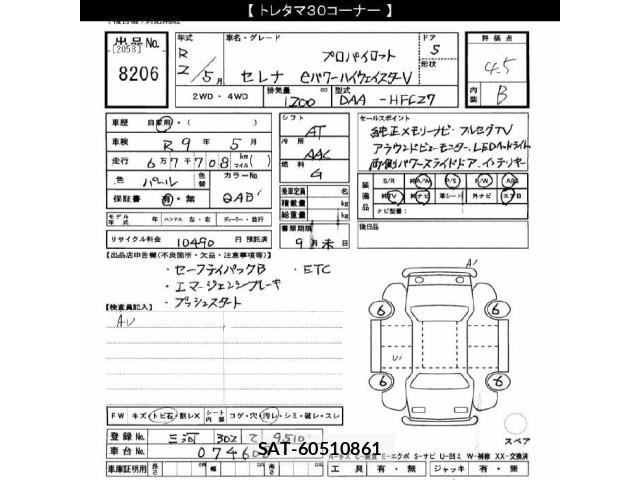 【 トレタマ30コーナー 】
出品No.
[2058]
8206
年式
R 2/5月
車名・グレード
プロパイロット
セレナ eパワーハイウェイスターV
ドア 5
形状
評価点
4.5
内装 B
2WD・4WD
排気量 1200 cc
型式 DAA -HFC27
車歴 自家用・( )
車検 R 9年 5月
走行 6万7千708 km マイル( )
色 パール
色替
カラーNo. QAB
保証書 有・無
シフト AT
冷房 AAC
燃料 G
セールスポイント
純正メモリーナビ フルセグTV
アラウンドビューモニター LEDヘッドライト
両側パワースライドドア インテリキー
装備品
S/R 純A/W P/S P/W ABS
純TV 純ナビ 革シート 外ナビ エアB
ナビ型番:
乗車定員 名
積載量 kg
総重量 kg
書類期限
9月末日
モデル年式 年 ハンドル 左・右 ディーラー・並行
リサイクル料金 10490 円 預託済
後日品
【出品店申告欄(不良箇所・欠品・注意事項等)】
・セーフティパックB ・ETC
・エマージェンシーブレーキ
・プッシュスタート
【検査員記入】
AU
A1
6 6
U1
6 6
スペア
FW キズ・トビ石・割レX
シート内装 コゲ・穴・汚レ・シミ・破レ・スレ
登録No. 三河 302 て 9510
車台No. 07460
SAT-60510861
E-エクボ S-サビ U-凹ミ W-補修 XX-交換済
車庫証明用 長さ cm 幅 cm 高さ cm
工具 有・無 ジャッキ 有・無